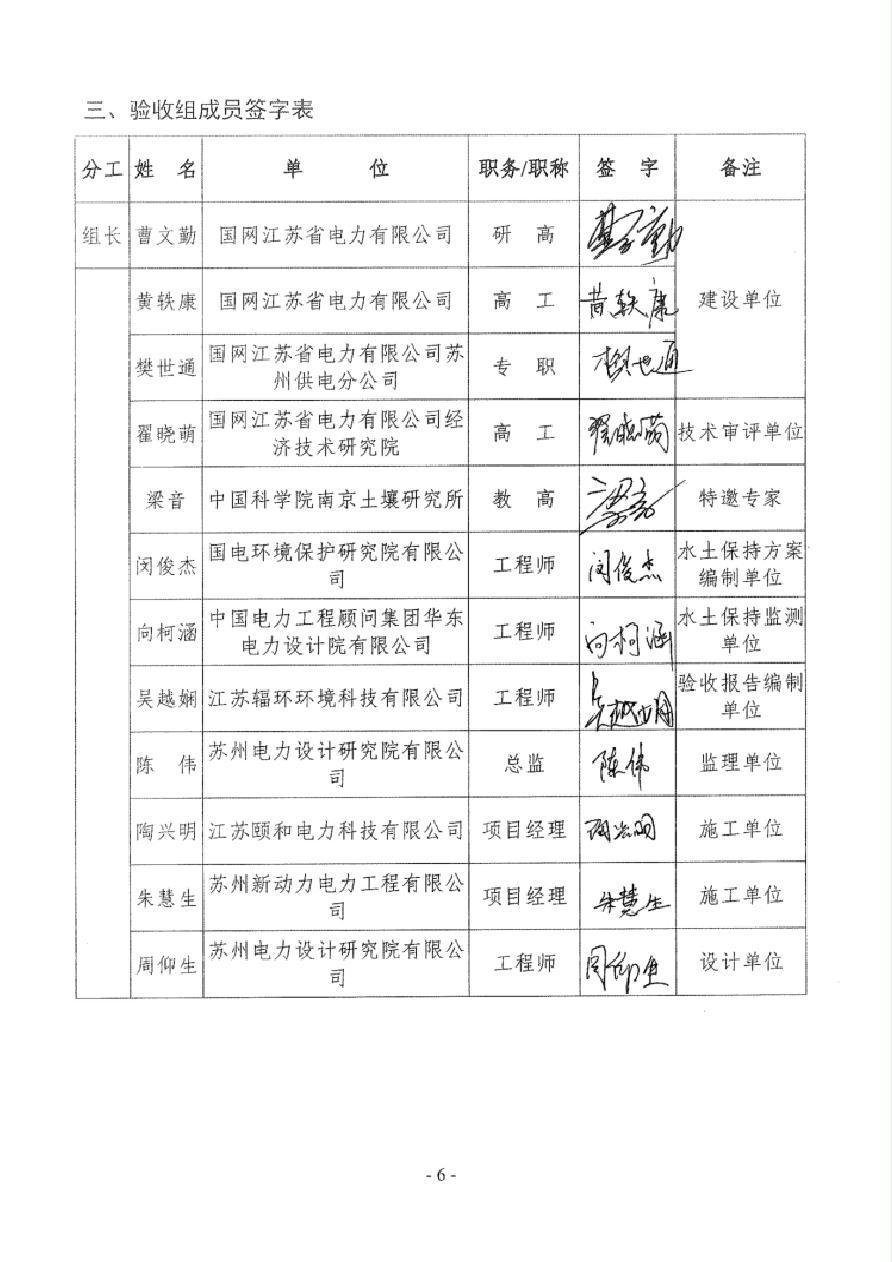 三、验收组成员签字表
分工 姓 名 单 位 职务/职称 签 字 备注
组长 曹文勤 国网江苏省电力有限公司 研 高 曹文勤
黄轶康 国网江苏省电力有限公司 高 工 黄轶康 建设单位
樊世通 国网江苏省电力有限公司苏
州供电分公司 专 职 樊世通
翟晓萌 国网江苏省电力有限公司经
济技术研究院 高 工 翟晓萌 技术审评单位
梁音 中国科学院南京土壤研究所 教 高 梁音 特邀专家
闵俊杰 国电环境保护研究院有限公
司 工程师 闵俊杰 水土保持方案
编制单位
向柯涵 中国电力工程顾问集团华东
电力设计院有限公司 工程师 向柯涵 水土保持监测
单位
吴越娴 江苏辐环环境科技有限公司 工程师 吴越娴 验收报告编制
单位
陈 伟 苏州电力设计研究院有限公
司 总监 陈伟 监理单位
陶兴明 江苏颐和电力科技有限公司 项目经理 陶兴明 施工单位
朱慧生 苏州新动力电力工程有限公
司 项目经理 朱慧生 施工单位
周仰生 苏州电力设计研究院有限公
司 工程师 周仰生 设计单位
- 6 -